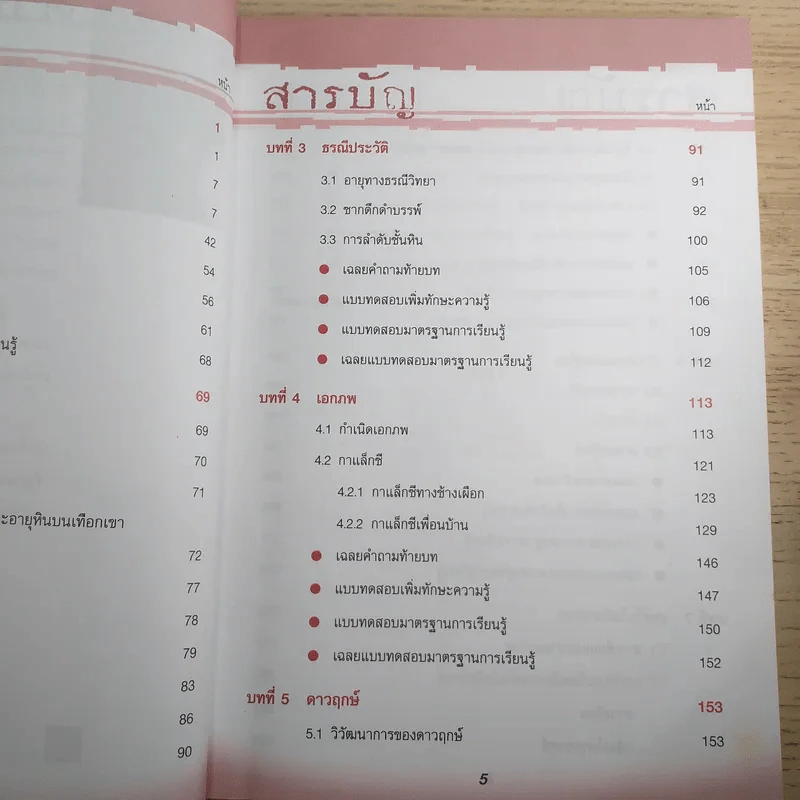 หน้า
1
1
7
7
42
54
56
61
นรู้
68
69
69
70
71
ะอายุหินบนเทือกเขา
72
77
78
79
83
86
90
สารบัญ
หน้า
บทที่ 3 ธรณีประวัติ 91
3.1 อายุทางธรณีวิทยา 91
3.2 ซากดึกดำบรรพ์ 92
3.3 การลำดับชั้นหิน 100
● เฉลยคำถามท้ายบท 105
● แบบทดสอบเพิ่มทักษะความรู้ 106
● แบบทดสอบมาตรฐานการเรียนรู้ 109
● เฉลยแบบทดสอบมาตรฐานการเรียนรู้ 112
บทที่ 4 เอกภพ 113
4.1 กำเนิดเอกภพ 113
4.2 กาแล็กซี 121
4.2.1 กาแล็กซีทางช้างเผือก 123
4.2.2 กาแล็กซีเพื่อนบ้าน 129
● เฉลยคำถามท้ายบท 146
● แบบทดสอบเพิ่มทักษะความรู้ 147
● แบบทดสอบมาตรฐานการเรียนรู้ 150
● เฉลยแบบทดสอบมาตรฐานการเรียนรู้ 152
บทที่ 5 ดาวฤกษ์ 153
5.1 วิวัฒนาการของดาวฤกษ์ 153
5